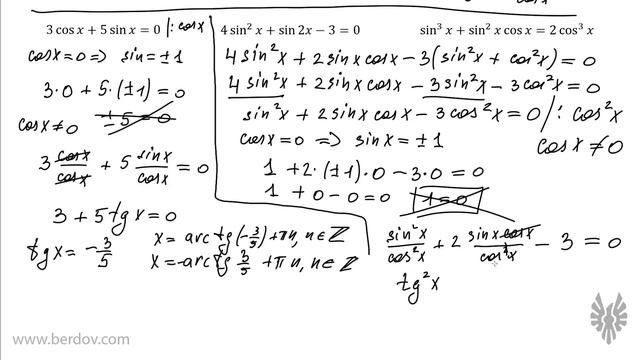 3 cos x + 5 sin x = 0 |: cosx
cosx=0 => sin=±1
3·0 + 5·(±1) = 0
cosx≠0 ±5=0
3 cosx/cosx + 5 sinx/cosx = 0
3 + 5tgx = 0
tgx = -3/5
x = arctg(-3/5) + πn, n∈Z
x = -arctg 3/5 + πn, n∈Z
4 sin² x + sin 2x − 3 = 0
sin³ x + sin² x cos x = 2 cos³ x
4sin²x + 2sinxcosx - 3(sin²x + cos²x) = 0
4sin²x + 2sinxcosx - 3sin²x - 3cos²x = 0
sin²x + 2sinxcosx - 3cos²x = 0 /: cos²x
cosx=0 => sinx=±1
cosx≠0
1 + 2·(±1)·0 - 3·0 = 0
1 + 0 - 0 = 0 1=0
sin²x/cos²x + 2 sinx cosx/cos²x - 3 = 0
tg²x
www.berdov.com